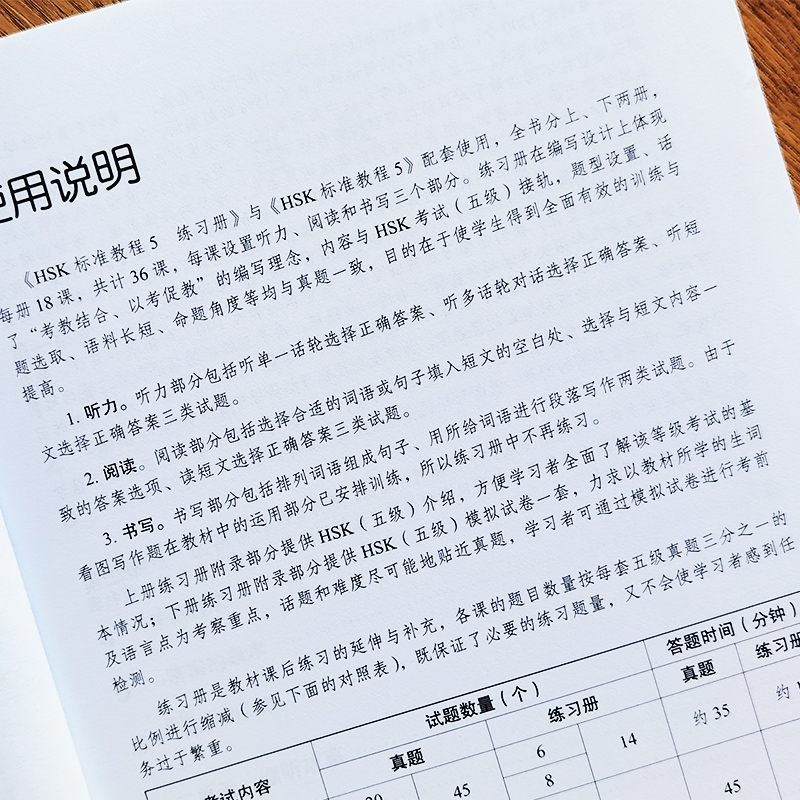 使用说明
《HSK 标准教程 5　练习册》与《HSK 标准教程 5》配套使用，全书分上、下两册，
每册 18 课，共计 36 课，每课设置听力、阅读和书写三个部分。练习册在编写设计上体现
了“考教结合、以考促教”的编写理念，内容与 HSK 考试（五级）接轨，题型设置、话
题选取、语料长短、命题角度等均与真题一致，目的在于使学生得到全面有效的训练与
提高。
1. 听力。听力部分包括听单一话轮选择正确答案、听多话轮对话选择正确答案、听短
文选择正确答案三类试题。
2. 阅读。阅读部分包括选择合适的词语或句子填入短文的空白处、选择与短文内容一
致的答案选项、读短文选择正确答案三类试题。
3. 书写。书写部分包括排列词语组成句子、用所给词语进行段落写作两类试题。由于
看图写作题在教材中的运用部分已安排训练，所以练习册中不再练习。
上册练习册附录部分提供 HSK（五级）介绍，方便学习者全面了解该等级考试的基
本情况；下册练习册附录部分提供 HSK（五级）模拟试卷一套，力求以教材所学的生词
及语言点为考察重点，话题和难度尽可能地贴近真题，学习者可通过模拟试卷进行考前
检测。
练习册是教材课后练习的延伸与补充，各课的题目数量按每套五级真题三分之一的
比例进行缩减（参见下面的对照表），既保证了必要的练习题量，又不会使学习者感到任
务过于繁重。
考试内容 试题数量（个） 答题时间（分钟）
真题 练习册 真题 练习册
20 45 6 14 约 35 约
8
45